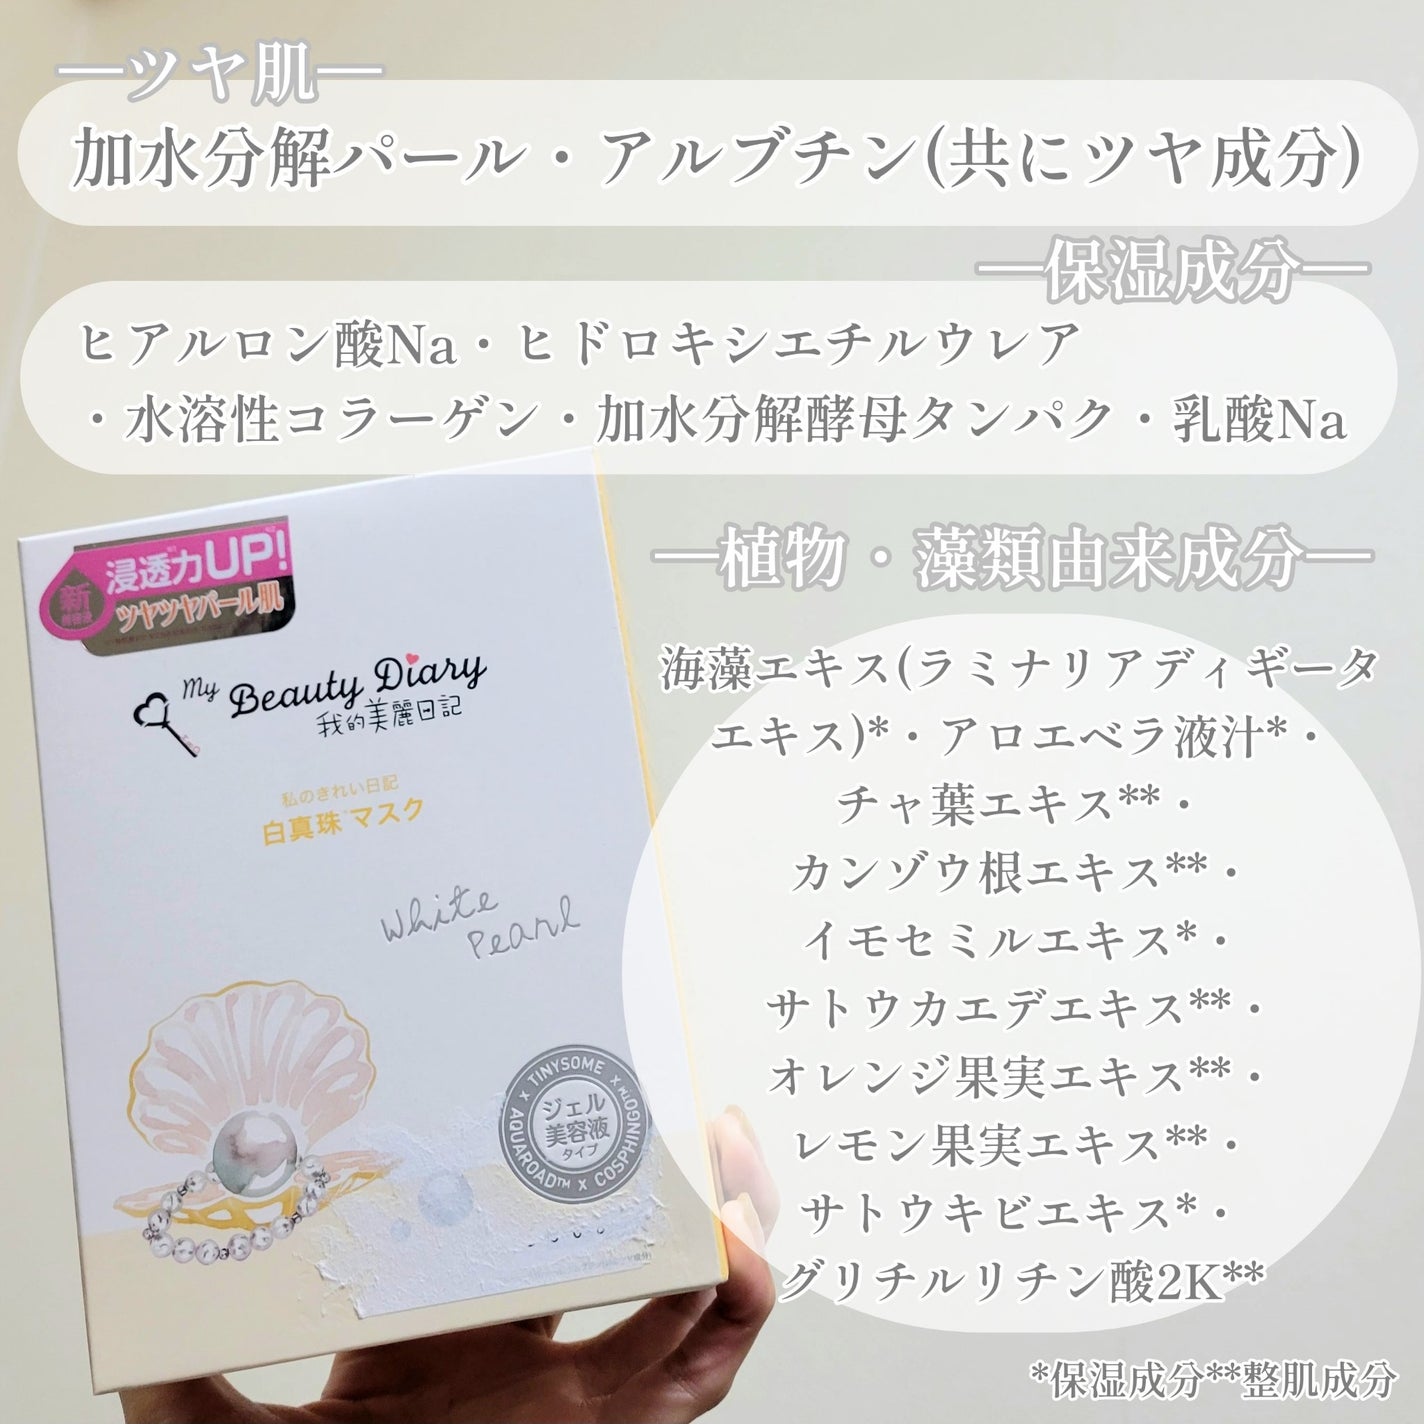 ―ツヤ肌―
加水分解パール・アルブチン(共にツヤ成分)
―保湿成分―
ヒアルロン酸Na・ヒドロキシエチルウレア
・水溶性コラーゲン・加水分解酵母タンパク・乳酸Na
―植物・藻類由来成分―
海藻エキス(ラミナリアディギータ
エキス)*・アロエベラ液汁*・
チャ葉エキス**・
カンゾウ根エキス**・
イモセミルエキス*・
サトウカエデエキス**・
オレンジ果実エキス**・
レモン果実エキス**・
サトウキビエキス*・
グリチルリチン酸2K**
*保湿成分**整肌成分
新
美容液
浸透力UP!
ツヤツヤパール肌
My Beauty Diary
我的美麗日記
私のきれい日記
白真珠マスク
White
Pearl
TINYSOME × COSPHINGO™ × AQUAROAD™ ×
ジェル
美容液
タイプ